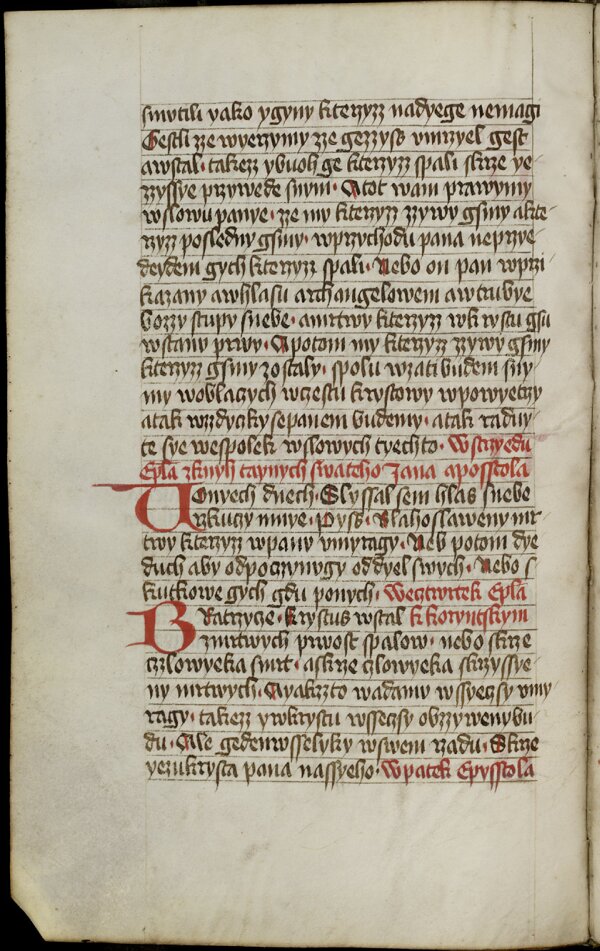 smutili yako ygyny kterzyz nadyege nemagi
Gestli ze wyerzymy ze gezzyss vmrzyel gest
awstal· takez ybuoh ge kterzyz spali skrze ye-
zzyssye przywede snym· Atot wam prawymy
wslowu panye· ze my kterzyz zzywy gsmy akte-
rzyz posledny gsmy· wprzychodu pana neprzye-
deydem gych kterzyz spali· Nebo on pan wprzi-
kazany awhlasu archangelowem awtrubye
bozzy stupy snebe· amrtwy kterzyz wkrystu gsu
wstanu prwy· Apotom my kterzyz zzywy gsmy
kterzyz gsmy zostaly· spolu wzati budem sny-
my woblaczych wczestu krystowy wpowyetrzy
atak wzdyczky sepanem budemy· atak raduy-
te sye wespolek wslowych tyechto· Wstrzyedu
Epla zknyh taynych swateho Jana apostola
Vonyech dnech· Slyssal sem hlas snebe
rzkuczy mnye· Pyss· Blahoslaweny mr-
twy kterzyz wpanu vmyragy· Neb potom dye
duch aby odpoczynugy oddyel swych· Nebo s-
kutkowe gych gdu ponych· Wecztwrtek Epla
Bratrzye· krystus wstal k korwntskym
zmrtwych prwost spalow· nebo skrze
czlowyeka smrt· askrze czlowyeka skrzyssye-
ny mrtwych· Ayakzto wadamu wssyeczsy vmy-
ragy· takez ywkrystu wsseczsy obzzywenybu-
du· Ale gedenwsselyky wswem rzadu· Skrze
yezukrysta pana nassyeho· Wpatek Epysstola